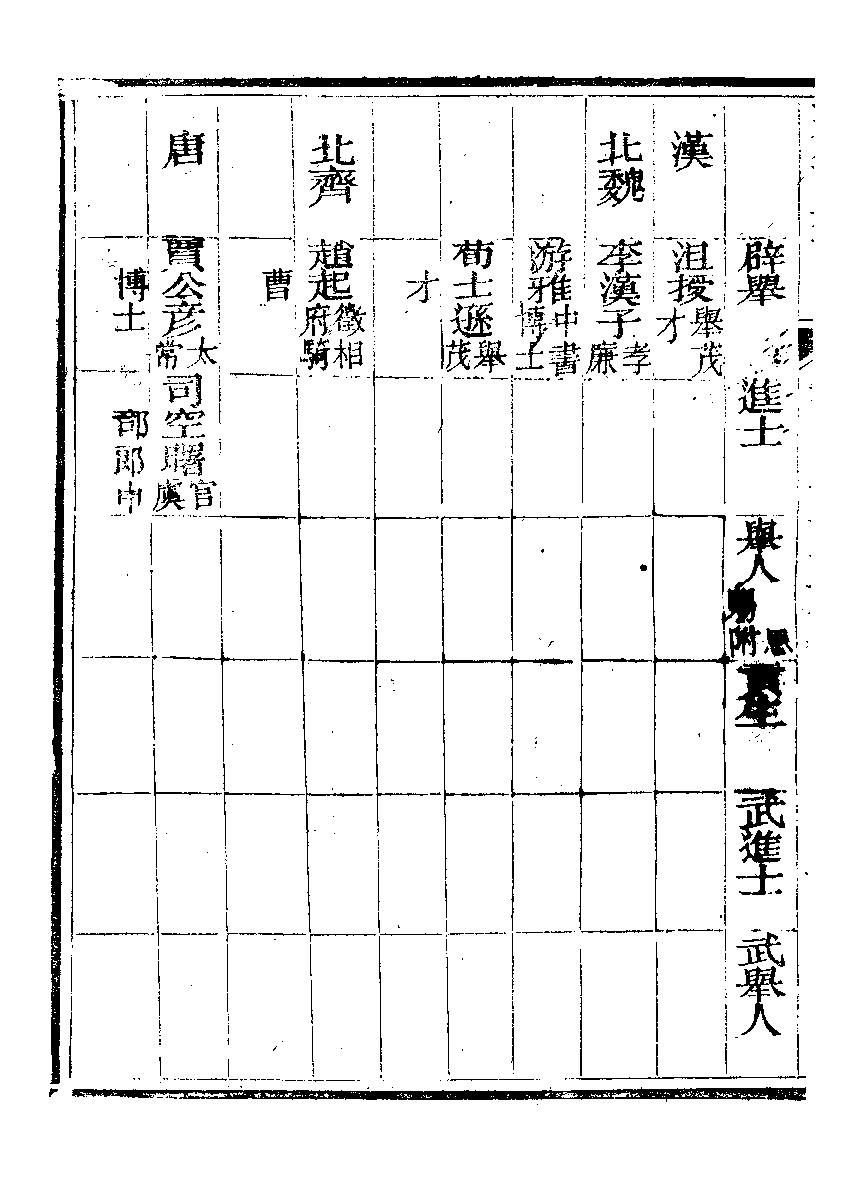 辟舉 進士 舉人 恩賜附 貢生 武進士 武舉人
漢 沮授舉茂才
北魏 李漢子孝廉
游雅中書博士
荀士遜舉茂
才
北齊 趙起徵相府騎
曹
唐 賈公彦太常 司空曙官虞
博士 部郎中